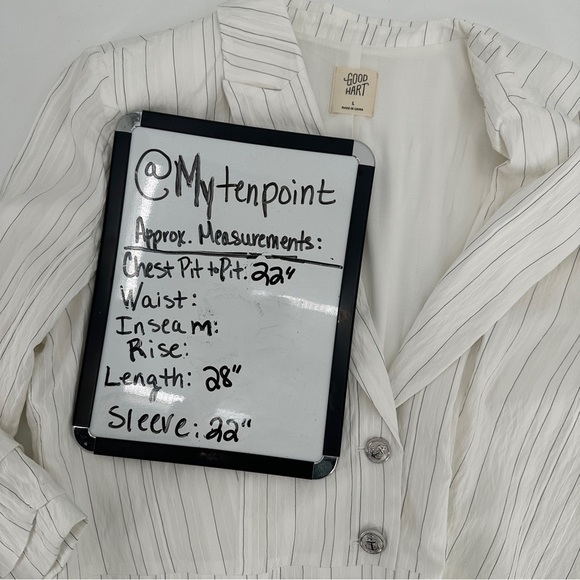 GOOD
HART
L
MADE IN CHINA
@Mytenpoint
Approx. Measurements:
Chest Pit to Pit: 22"
Waist:
Inseam:
Rise:
Length: 28"
Sleeve: 22"